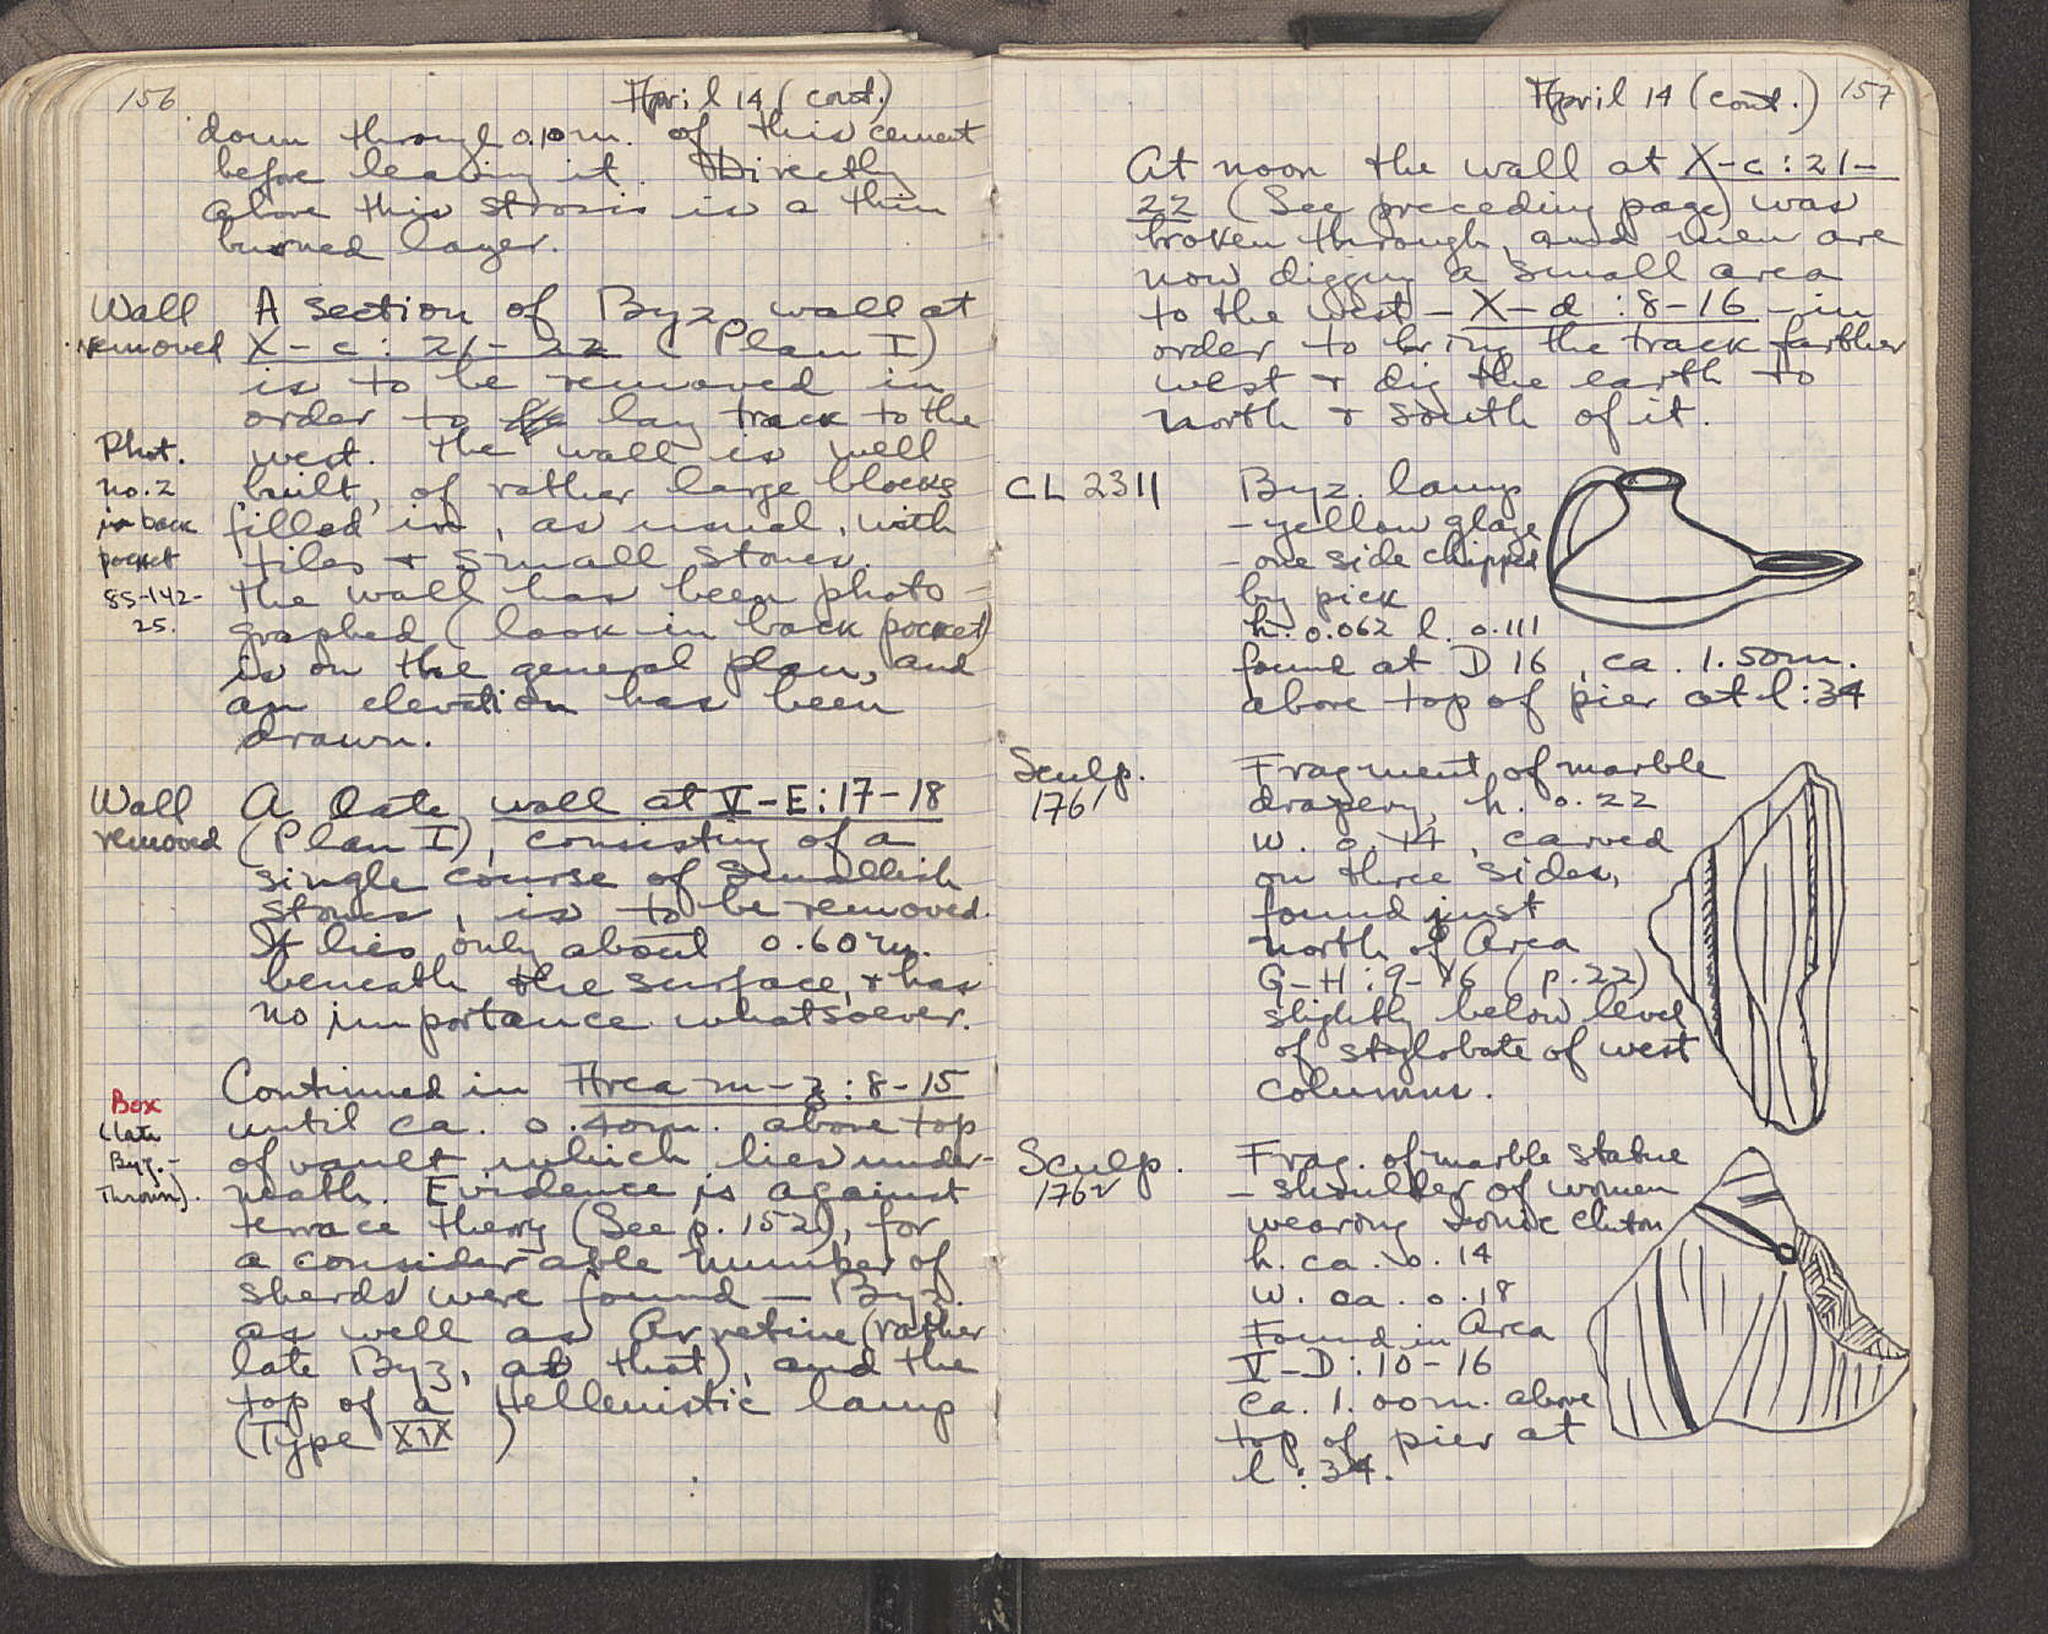 156
April 14 (cont.)
down through 0.10 m. of this cement
before leaving it. Directly
above this strosis is a thin
burned layer.
Wall
removed
A section of Byz. wall at
X-c: 21-22 (Plan I)
is to be removed in
order to lay track to the
west. The wall is well
built, of rather large blocks
filled in, as usual, with
tiles + small stones.
The wall has been photo-
graphed (look in back pocket)
is on the general plan, and
an elevation has been
drawn.
Phot.
no. 2
in back
pocket
85-142-
25.
Wall
removed
A late wall at V-E: 17-18
(Plan I), consisting of a
single course of smallish
stones, is to be removed.
It lies only about 0.60 m.
beneath the surface, + has
no importance whatsoever.
Box
(late
Byz.-
Thrown).
Continued in Area m-z: 8-15
until ca. 0.40m. above top
of vault which lies under-
neath. Evidence is against
terrace theory (See p. 152), for
a considerable number of
sherds were found — Byz.
as well as Arretine (rather
late Byz, at that), and the
top of a Hellenistic lamp
(Type XIX )
April 14 (cont.) 157
At noon the wall at X-c: 21-
22 (See preceding page) was
broken through, and men are
now digging a small area
to the west – X-d : 8-16 – in
order to bring the track farther
west + dig the earth to
north + south of it.
CL 2311
Byz. lamp
- yellow glaze
- one side chipped
by pick
h. 0.062 l. 0.111
found at D 16, ca. 1.50m.
above top of pier at l:34
Sculp.
1761
Fragment of marble
drapery, h. 0.22
w. 0.14, carved
on three sides,
found just
north of Area
G-H: 9-16 (p. 22)
slightly below level
of stylobate of west
columns.
Sculp.
1762
Frag. of marble statue
- shoulder of women
wearing Ionic chiton
h. ca. 0.14
w. ca. 0.18
Found in Area
V-D: 10-16
ca. 1.00m. above
top of pier at
l: 34.